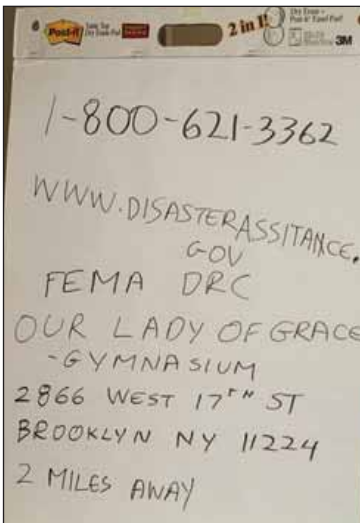 Post-it
2 in 1!
3M
1-800-621-3362
WWW.DISASTERASSITANCE.
GOV
FEMA DRC
OUR LADY OF GRACE
-GYMNASIUM
2866 WEST 17TH ST
BROOKLYN NY 11224
2 MILES AWAY